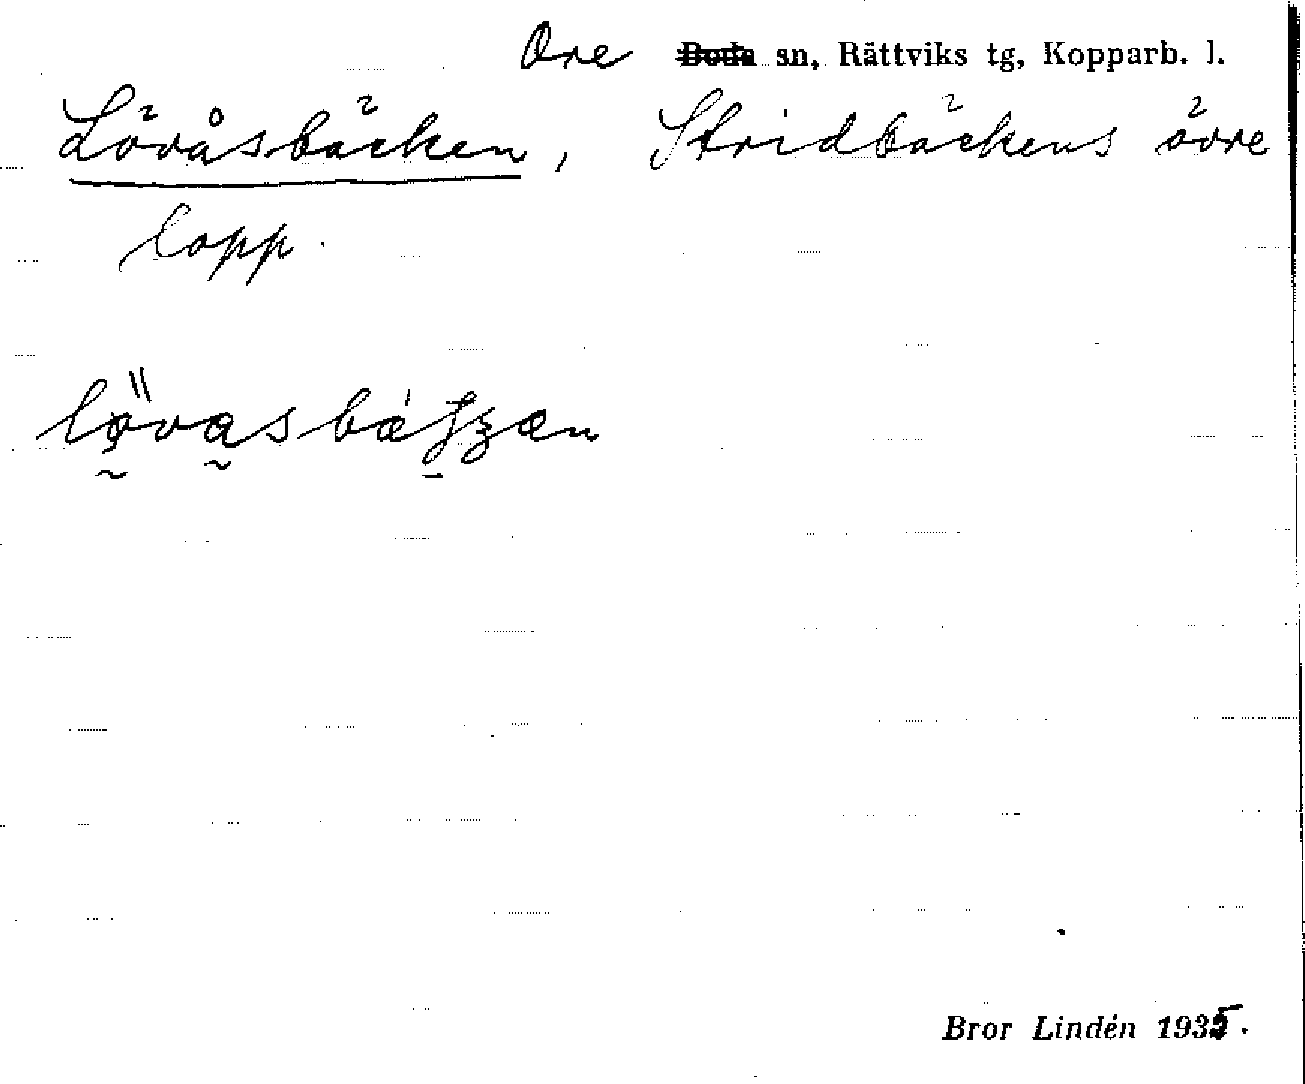 Ore ~~Boda~~ sn, Rättviks tg, Kopparb. l.
Lövåsbäcken, Stridbäckens övre
lopp.
Bror Lindén 1935.